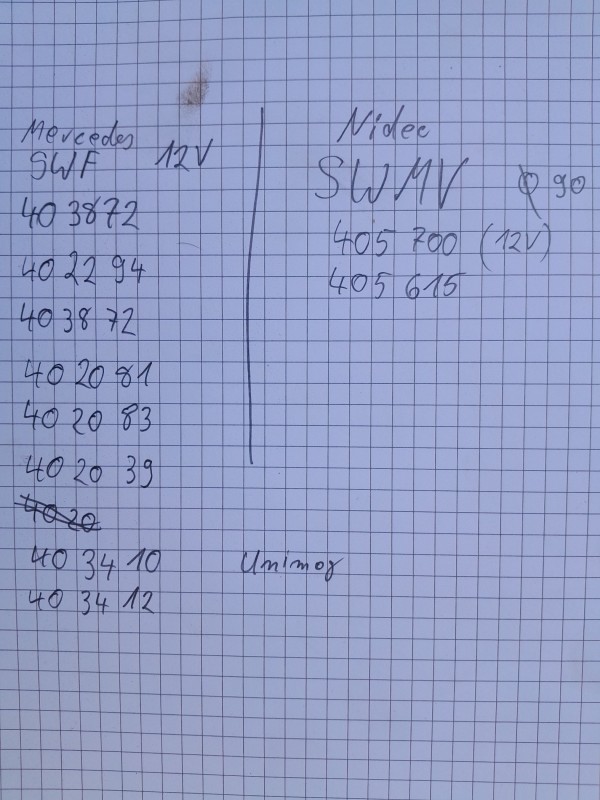 Mercedes
SWF 12V
40 3872
40 22 94
40 38 72
40 20 81
40 20 83
40 20 39
40 20
40 34 10
40 34 12
Nidec
SWMV
90
405 700 (12V)
405 615
Unimog